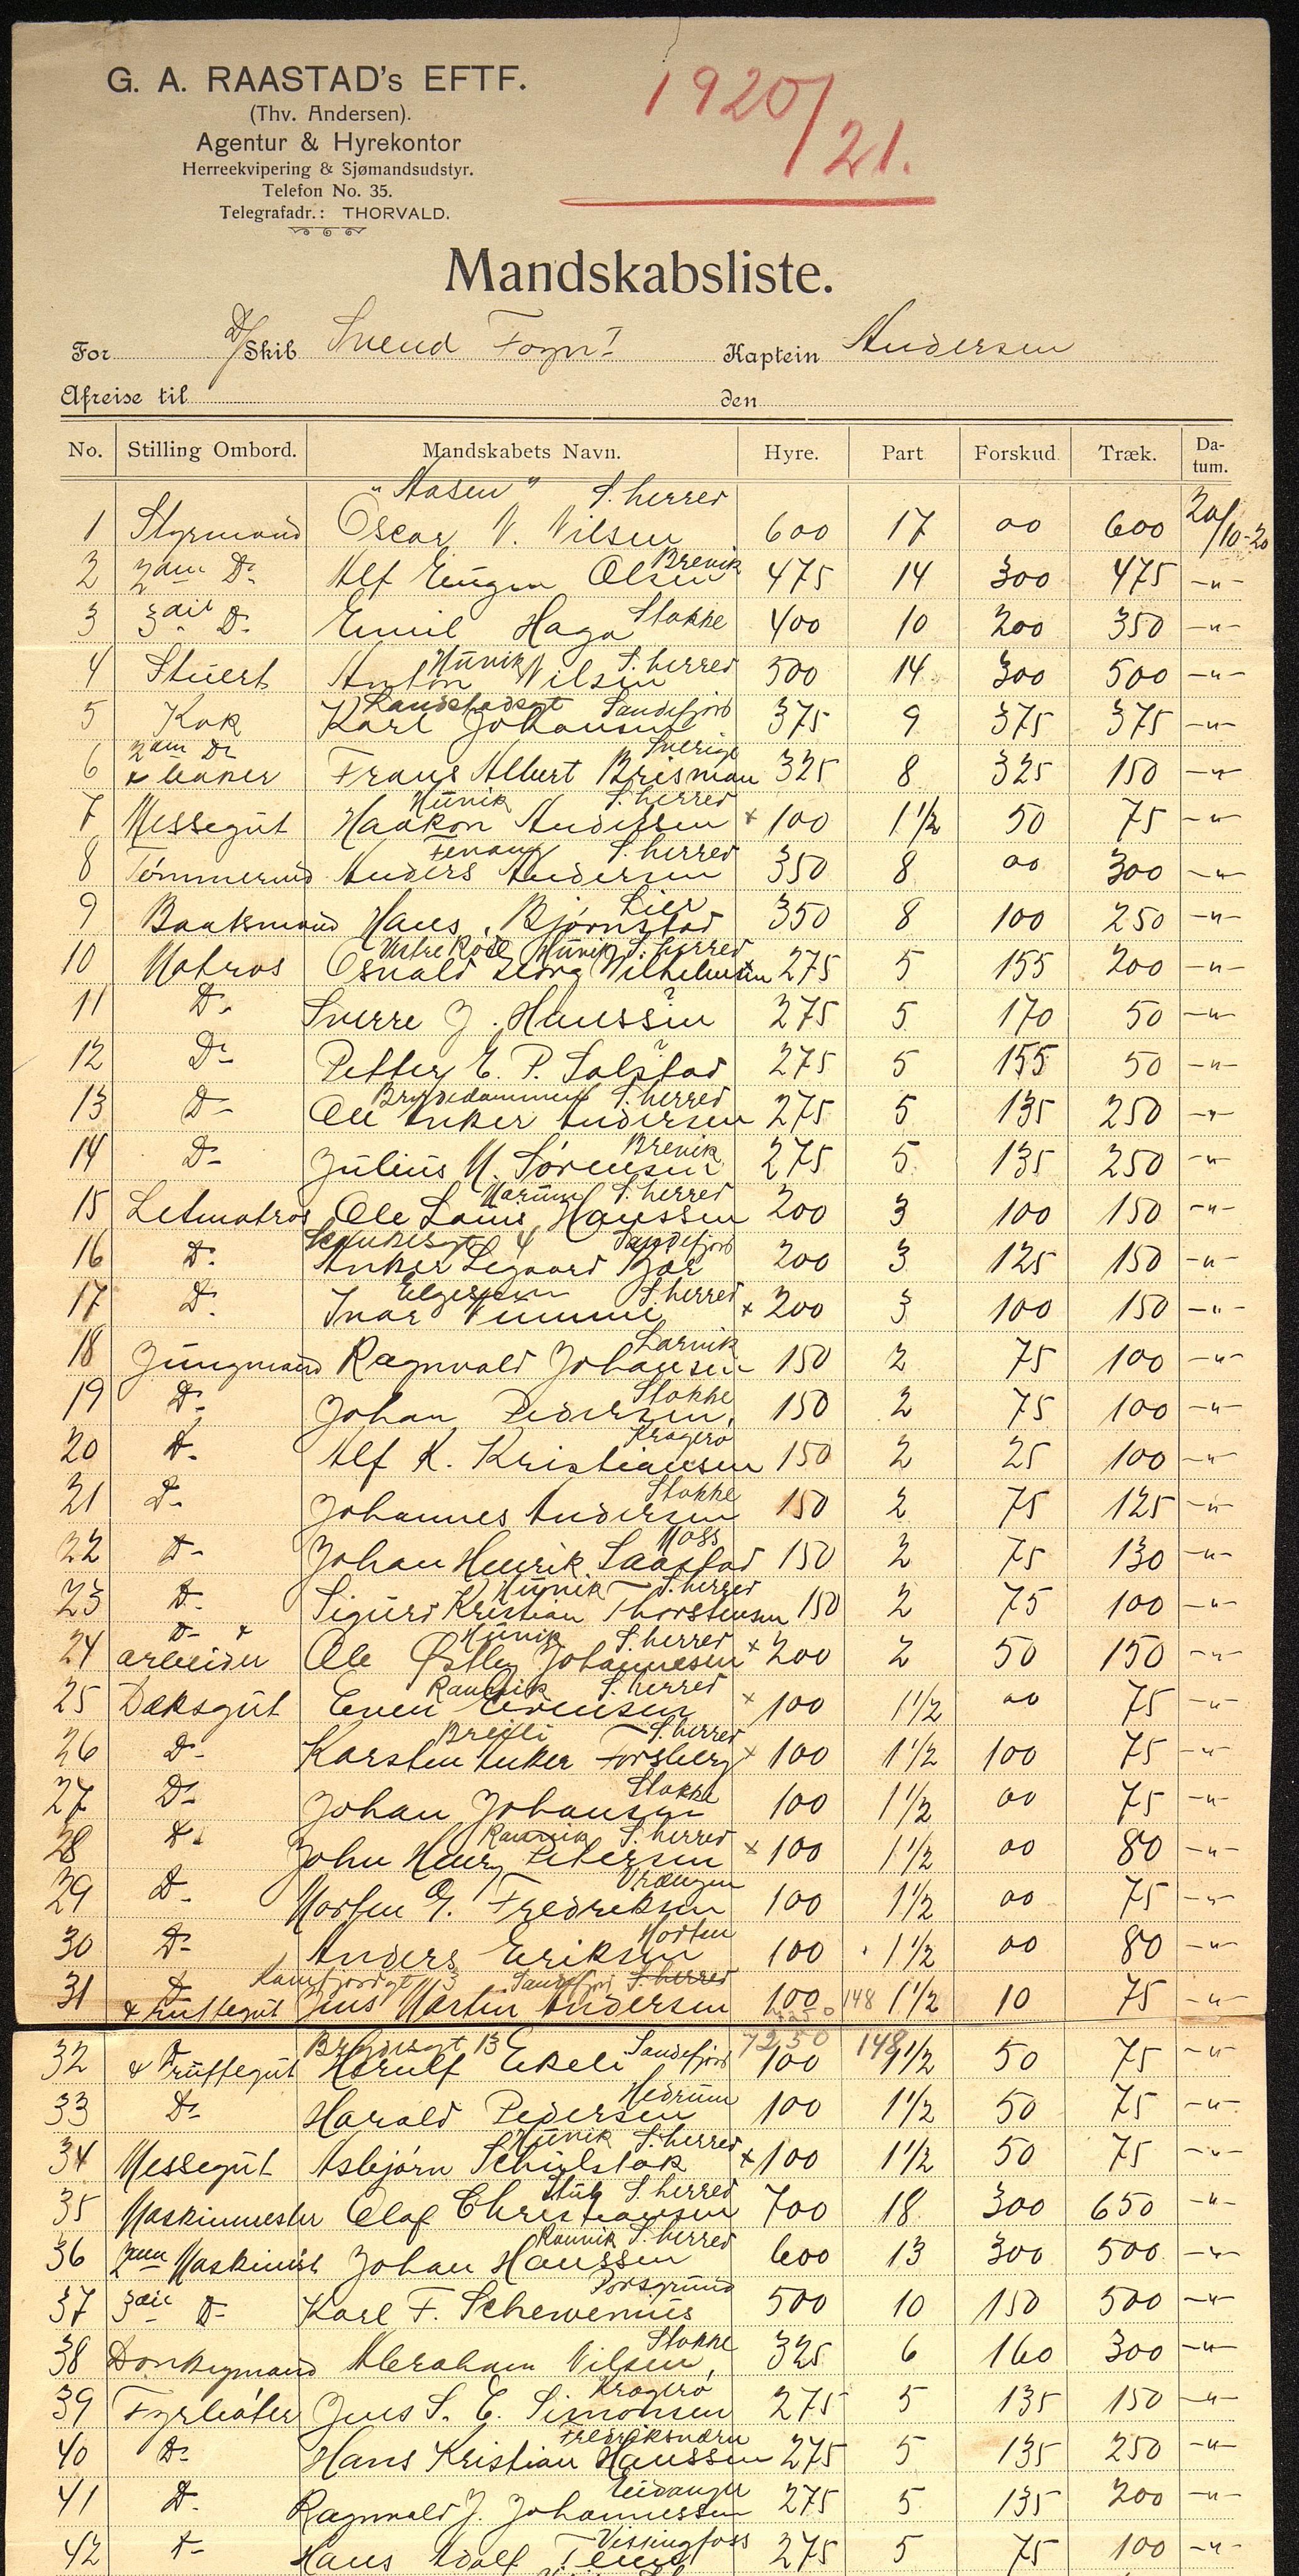 G. A. RAASTAD's EFTF.
(Thv. Andersen).
Agentur & Hyrekontor
Herreekvipering & Sjømandsudstyr.
Telefon No. 35.
Telegrafadr.: THORVALD.
1920/21.
Mandskabsliste.
For D/Skib Svend Foyn I Kaptein Andersen
Afreise til den
No. Stilling Ombord. Mandskabets Navn. Hyre. Part Forskud Træk. Da-tum.
"Aasen" S. herred
1 Styrmand Oscar N. Nilsen 600 17 00 600 20/10-20
Brevik
2 2den Do Alf Eugen Olsen 475 14 300 475 -"-
Stokke
3 3die Do Emil Haga 400 10 200 350 -"-
Hunik S. herred
4 Stuert Anton Nilsen 500 14 300 500 -"-
Landstadsgt Sandefjord
5 Kok Karl Johansen 375 9 375 375 -"-
2den Do Sverige
6 & baker Frans Albert Brisman 325 8 325 150 -"-
Hunik S. herred
7 Messegut Haakon Andersen x 100 1 1/2 50 75 -"-
S. herred
8 Tømmermd Anders Andersen 350 8 00 300 -"-
Lier
9 Baatsmand Hans Bjørnstad 350 8 100 250 -"-
Hunik S. herred
10 Matros Osvald Georg Wilhelmsen 275 5 155 200 -"-
?
11 Do Sverre J. Hanssen 275 5 170 50 -"-
?
12 Do Petter E. P. Solstad 275 5 155 50 -"-
Bryddedammen S. herred
13 Do Ole Anker Andersen 275 5 135 250 -"-
Brevik
14 Do Julius M. Sørensen 275 5 135 250 -"-
Marum S. herred
15 Letmatros Ole Louis Hanssen 200 3 100 150 -"-
4 Sandefjord
16 Do Anker Segaard Bær 200 3 125 150 -"-
Elgesem S. herred
17 Do Ivar Vemme x 200 3 100 150 -"-
Larvik
18 Jungmand Ragnvald Johansen 150 2 75 100 -"-
Stokke
19 Do Johan Pedersen 150 2 75 100 -"-
Kragerø
20 Do Alf K. Kristiansen 150 2 25 100 -"-
Stokke
21 Do Johannes Andersen 150 2 75 125 -"-
Moss
22 Do Johan Henrik Saastad 150 2 75 130 -"-
Hunik S. herred
23 Do Sigurd Kristian Thorstensen 150 2 75 100 -"-
Do & Hunik S. herred
24 arbeider Ole Østby Johannesen x 200 2 50 150 -"-
Ranvik S. herred
25 Daksgut Even Evensen x 100 1 1/2 00 75 -"-
Breili S. herred
26 Do Karsten Anker Forsberg x 100 1 1/2 100 75 -"-
Stokke
27 Do Johan Johansen 100 1 1/2 00 75 -"-
Ranvik S. herred
28 Do John Henry Petersen x 100 1 1/2 00 80 -"-
Vrængen
29 Do Morten G. Fredriksen 100 1 1/2 00 75 -"-
Horten
30 Do Anders Eriksen 100 1 1/2 00 80 -"-
Do Kamfjordgt 3 Sandefjord S. herred
31 & truttegut Jens Martin Andersen 100 148 1 1/2 10 75 -"-
13 Sandefjord 7250 148
32 & Truttegut Herulf Ekeli 100 1 1/2 50 75 -"-
Hedrum
33 Do Harald Pedersen 100 1 1/2 50 75 -"-
Hunik S. herred
34 Messegut Asbjørn Schulstok x 100 1 1/2 50 75 -"-
Stub S. herred
35 Maskinmester Olaf Christiansen 700 18 300 650 -"-
Ranvik S. herred
36 2den Maskinist Johan Hanssen 600 13 300 500 -"-
Porsgrund
37 3die Do Karl F. Schewenius 500 10 150 500 -"-
Stokke
38 Donkeymand Abraham Nilsen 325 6 160 300 -"-
Kragerø
39 Fyrbøter Jens S. E. Simonsen 275 5 135 150 -"-
Fredriksværn
40 Do Hans Kristian Hanssen 275 5 135 250 -"-
Eidanger
41 Do Ragnvald J. Johannessen 275 5 135 200 -"-
Vissingfoss
42 Do Hans Adolf 275 5 75 100 -"-